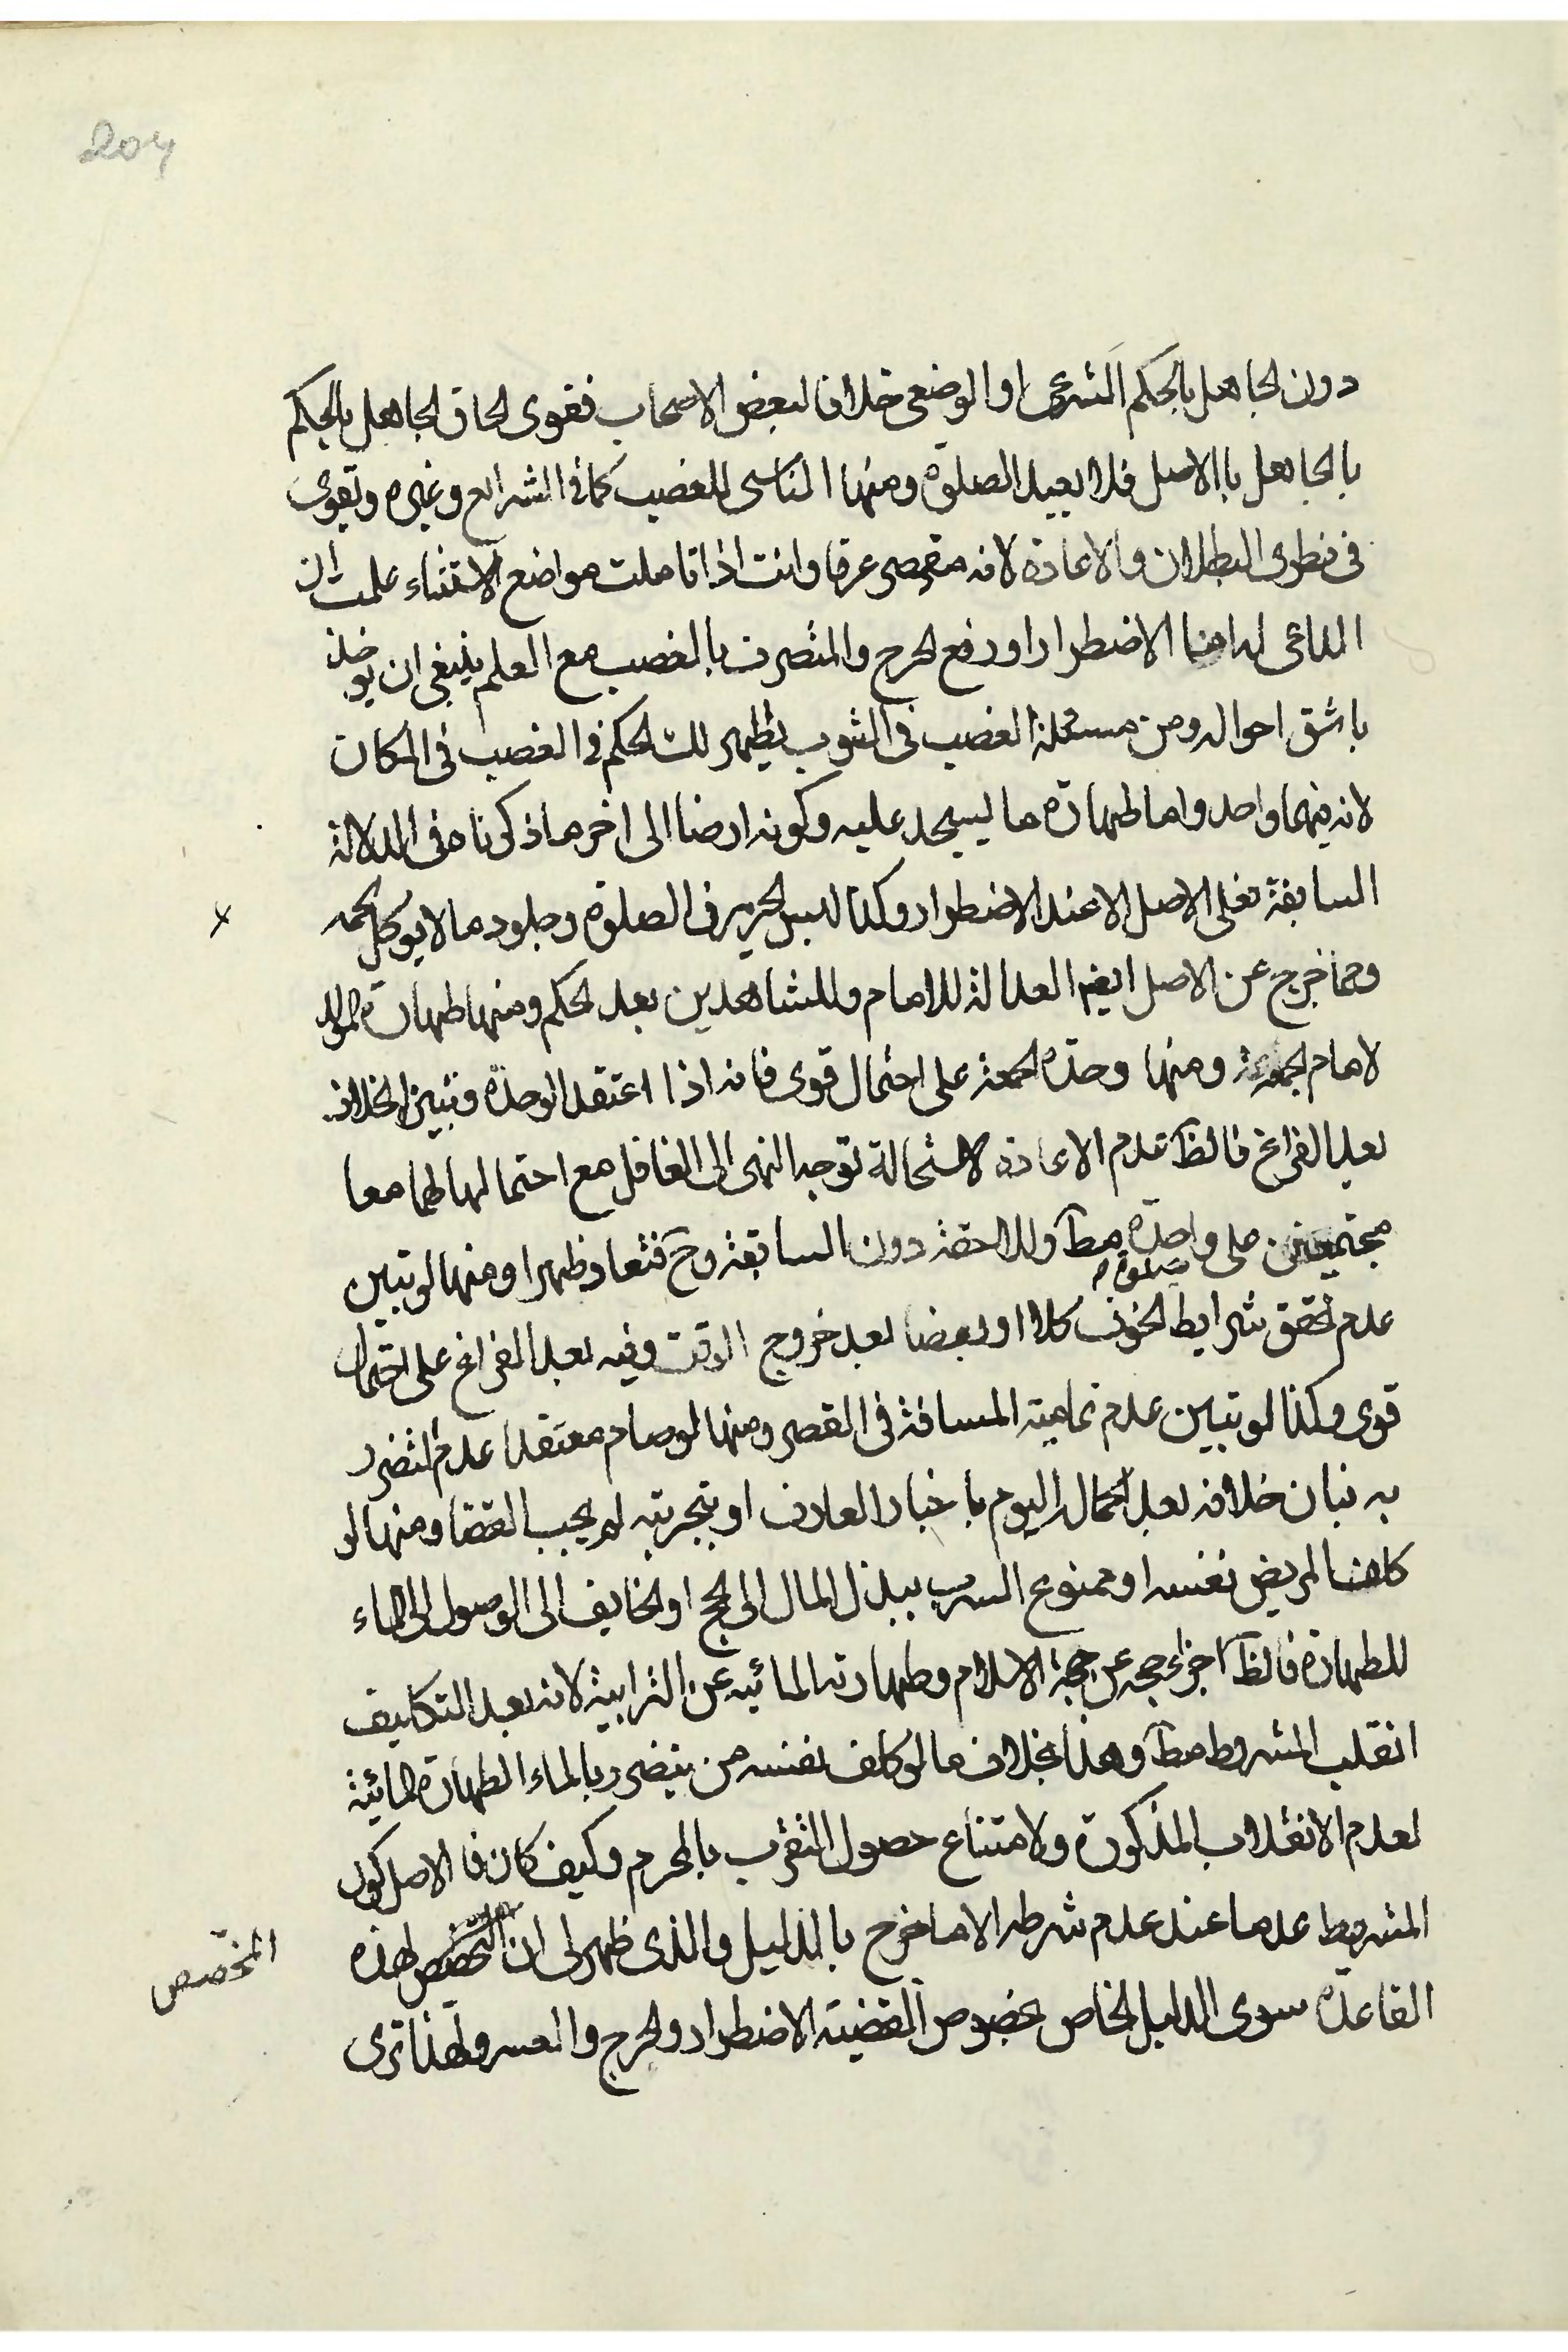 204
دون الجاهل بالحكم الشرعى او الوضعى خلافا لبعض الاصحاب فقوى الحاق الجاهل بالحكم
بالجاهل بالاصل فلا يعيد الصلوة ومنها الناسى للغصب كما فى الشرايع وغيره وتقوى
فى نظرى البطلان والاعادة لانه مقصر عرفا وانت اذا تاملت مواضع الاستثناء علمت ان
الداعى لها هنا الاضطرار او رفع الحرج والمتصرف بالغصب مع العلم ينبغى ان يوخذ
باشق احواله ومن مسئلة الغصب فى الثوب يظهر لك الحكم فى الغصب فى المكان
لانه فيهما واحد واما طهارة ما يسجد عليه وكونه ارضا الى اخر ما ذكرناه فى الدلالة
السابقة فعلى الاصل الا عند الاضطرار وكذا لبس الحرير فى الصلوة وجلود ما لا يوكل لحمه
ومما خرج عن الاصل ايضا العدالة للامام وللشاهدين بعد الحكم ومنها طهارة المولد
لامام الجمعة ومنها وحدة الجمعة على احتمال قوى فانه اذا اعتقد الوحدة وتبين الخلاف
بعد الفراغ فالظ عدم الاعادة لاستحالة توجه النهى الى الغافل مع احتمالها لهما معا
مجتمعين على واحدة مط وللاحقة دون السابقة وح فتعاد ظهرا ومنها لو تبين
صلوة
عدم تحقق شرايط الخوف كلا او بعضا بعد خروج الوقت وفيه بعد الفراغ على احتمال
قوى وكذا لو تبين عدم تمامية المسافة فى القصر ومنها لو صام معتقدا عدم التضرر
به فبان خلافه بعد اكمال اليوم باخبار العارف او بتجربته لم يجب القضا ومنها لو
كلف المريض نفسه او ممنوع السرب ببذل المال الى الحج او الخايف الى الوصول الى الماء
للطهارة فالظ اجزاء حجه عن حجة الاسلام وطهارته المائيه عن الترابية لانه بعد التكليف
انقلب المشروط مط وهذا بخلاف ما لو كلف نفسه من يتضرر بالماء الطهارة المائية
لعدم الانقلاب المذكورة ولامتناع حصول التقرب بالمحرم وكيف كان فالاصل كون
المشروط عدما عند عدم شرطه الا ما خرج بالدليل والذى ظهر لى ان التخصيص لهذه
المخصص
القاعدة سوى الدليل الخاص بخصوص القضية الاضطرار والحرج والعسر ولهذا ترى